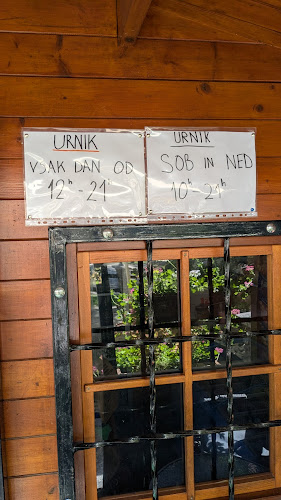 URNIK
VSAK DAN OD
12ʰ - 21ʰ
URNIK
SOB IN NED
10ʰ - 21ʰ